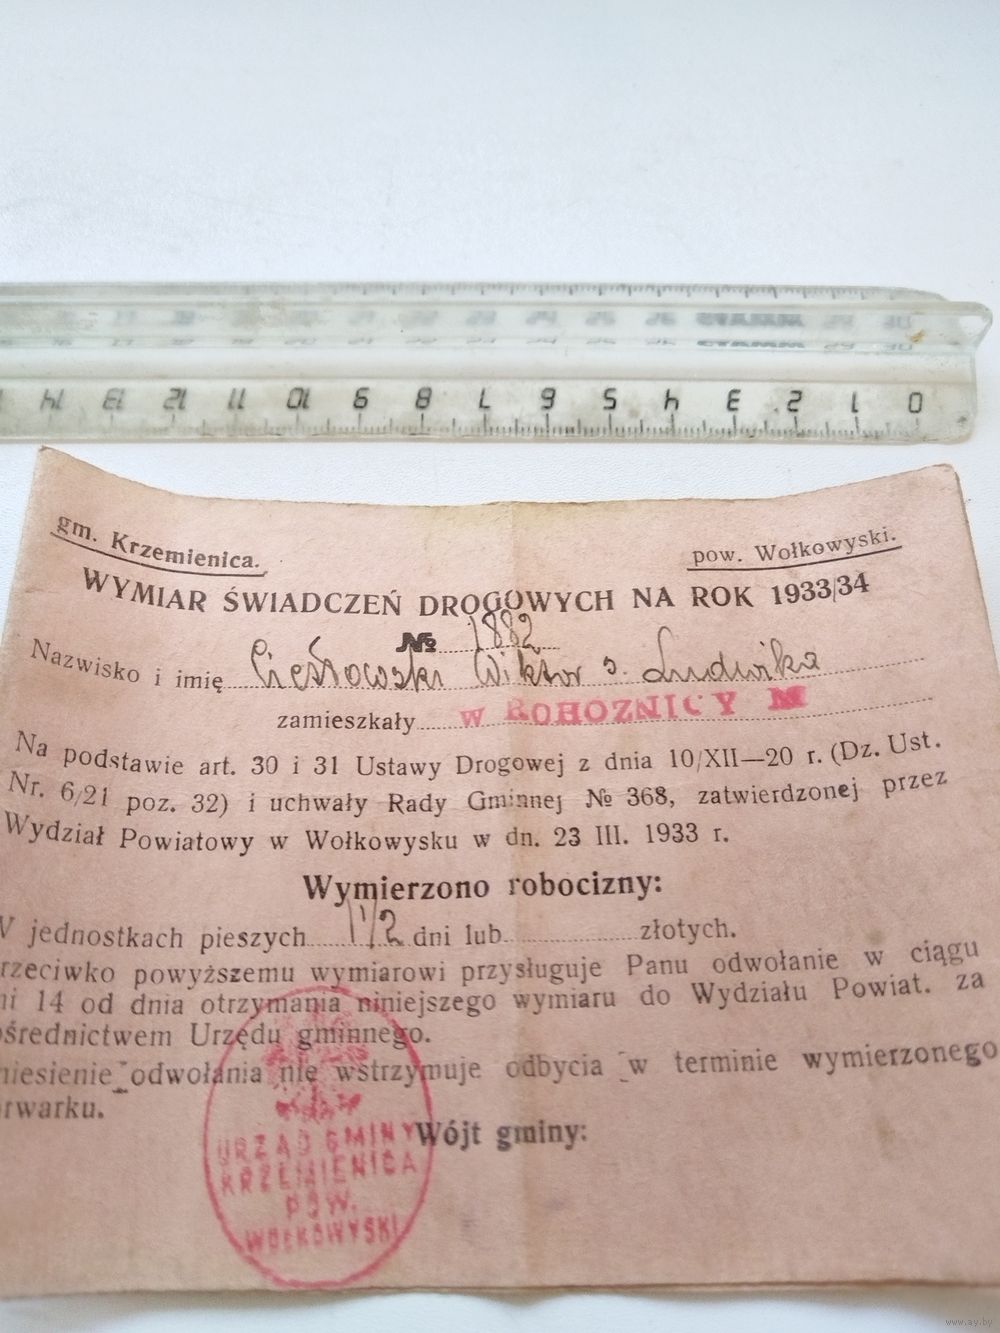 14 13 12 11 10 9 8 7 6 5 4 3 2 1 0
gm. Krzemienica.
pow. Wołkowyski.
WYMIAR ŚWIADCZEŃ DROGOWYCH NA ROK 1933/34
№ 1882
Nazwisko i imię Cieśłowski Wiktor s. Ludwika
zamieszkały W ROHOZNICY M
Na podstawie art. 30 i 31 Ustawy Drogowej z dnia 10/XII—20 r. (Dz. Ust.
Nr. 6/21 poz. 32) i uchwały Rady Gminnej № 368, zatwierdzonej przez
Wydział Powiatowy w Wołkowysku w dn. 23 III. 1933 r.
Wymierzono robocizny:
W jednostkach pieszych 1 1/2 dni lub złotych.
rzeciwko powyższemu wymiarowi przysługuje Panu odwołanie w ciągu
ni 14 od dnia otrzymania niniejszego wymiaru do Wydziału Powiat. za
ośrednictwem Urzędu gminnego.
niesienie odwołania nie wstrzymuje odbycia w terminie wymierzonego
rwarku.
Wójt gminy:
URZĄD GMINY
KRZEMIENICA
POW.
WOŁKOWYSKI
www.ay.by